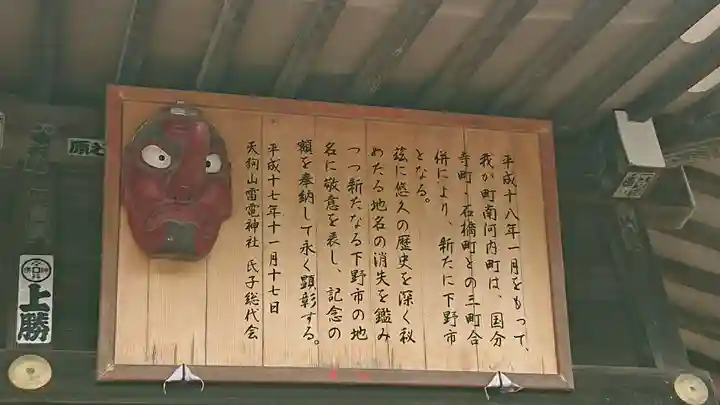 平成十八年一月をもって、
我が町南河内町は、国分
寺町・石橋町との三町合
併により、新たに下野市
となる。
茲に悠久の歴史を深く秘
めたる地名の消失を鑑み
つつ新たなる下野市の地
名に敬意を表し、記念の
額を奉納して永く顕彰する。
平成十七年十一月十七日
天狗山雷電神社 氏子総代会
上勝